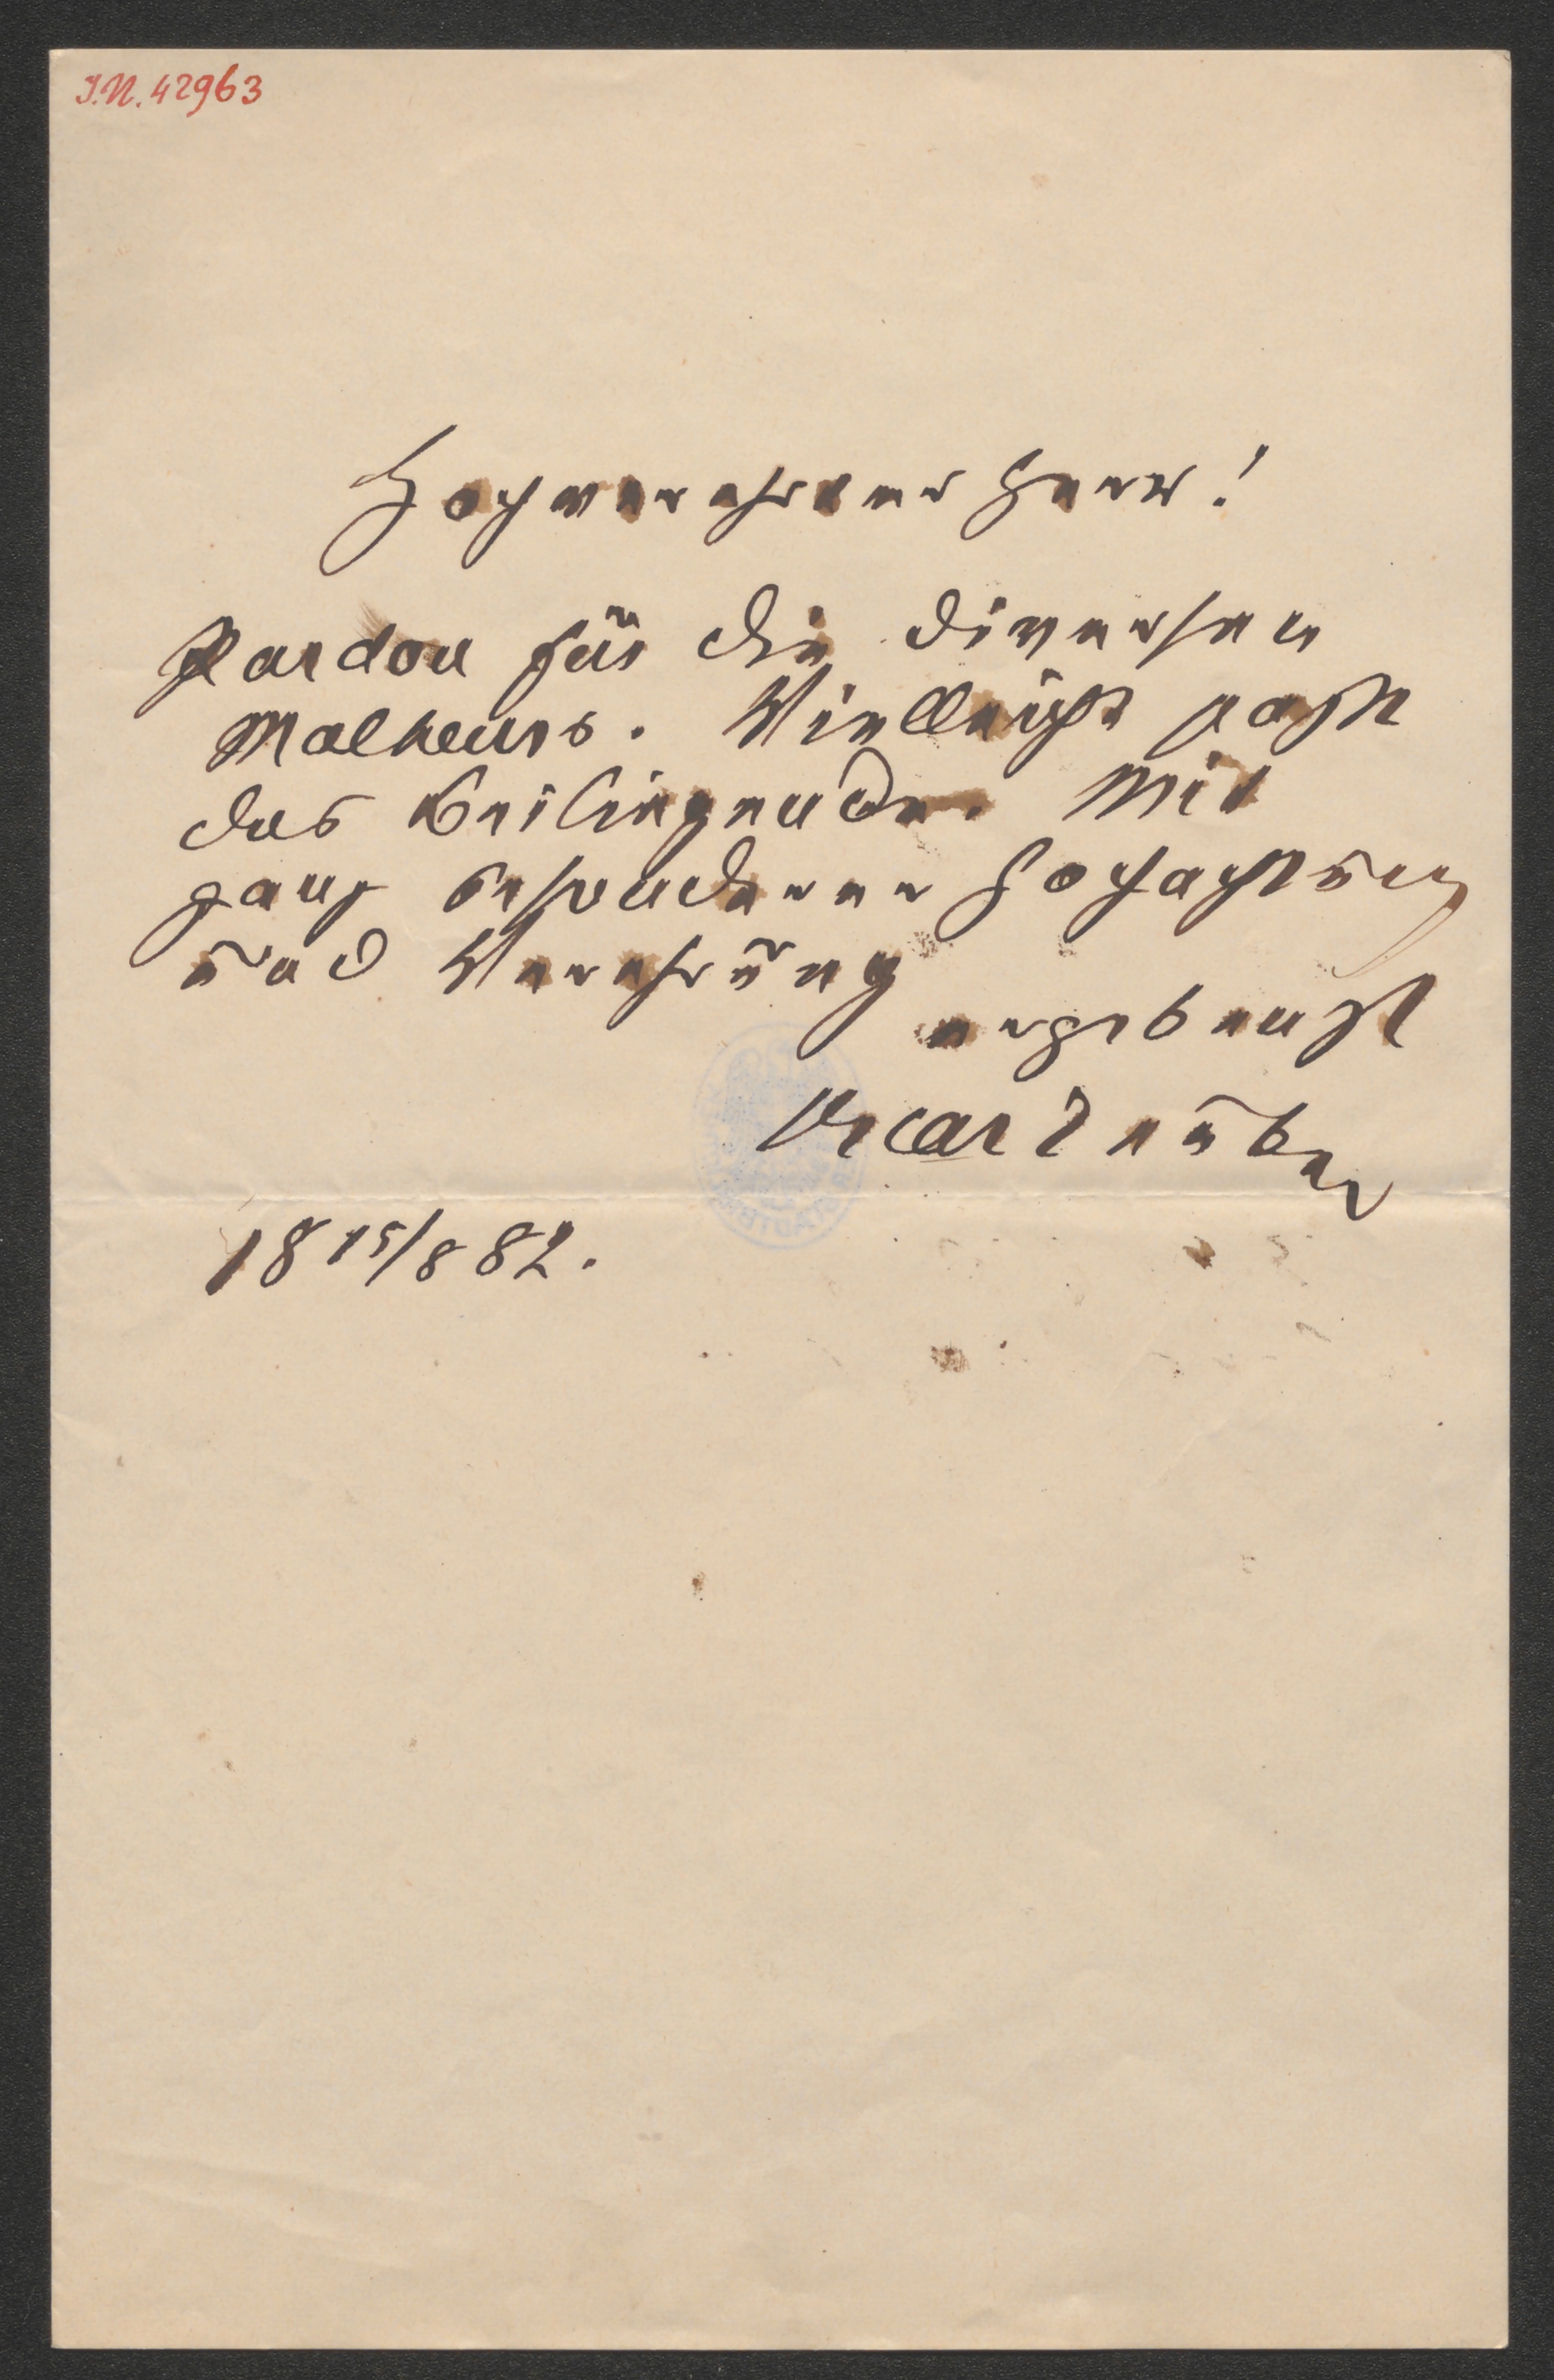 I.N. 42963
Hochverehrter Herr!
Pardon für die diversen
Malheurs. Vielleicht paßt
das Beiliegende. Mit
ganz besonderer Hochachtung
und Verehrung
ergebenst
18 15/8 82.